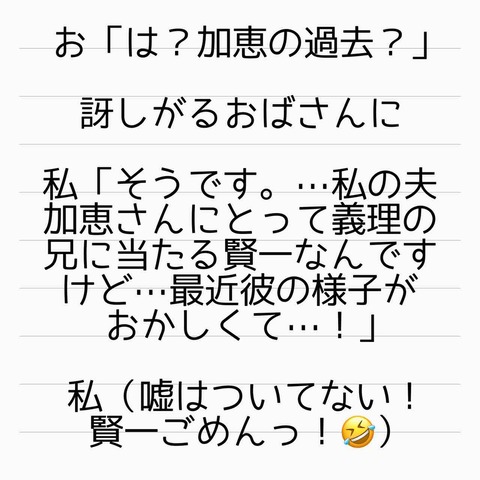 お「は？加恵の過去？」
訝しがるおばさんに
私「そうです。…私の夫
加恵さんにとって義理の
兄に当たる賢一なんです
けど…最近彼の様子が
おかしくて…！」
私（嘘はついてない！
賢一ごめんっ！🤣）